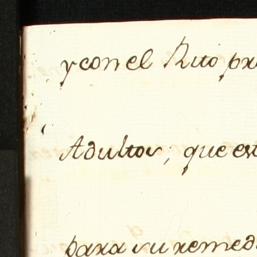 y con el Rito pr
Adultos, que es
para su remed